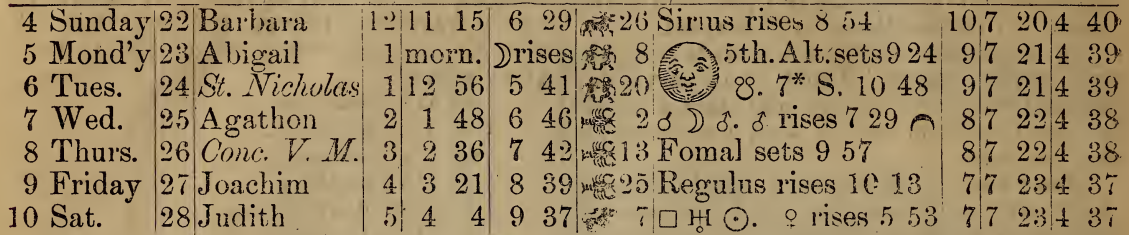 4 Sunday 22 Barbara 12 11 15 6 29 26 Sirius rises 8 54 10 7 20 4 40
5 Mond'y 23 Abigail 1 morn. ☽rises 8 5th. Alt. sets 9 24 9 7 21 4 39
6 Tues. 24 St. Nicholas 1 12 56 5 41 20 ☋. 7* S. 10 48 9 7 21 4 39
7 Wed. 25 Agathon 2 1 48 6 46 2 ☌ ☽ ♂. ♂ rises 7 29 8 7 22 4 38
8 Thurs. 26 Conc. V. M. 3 2 36 7 42 13 Fomal sets 9 57 8 7 22 4 38
9 Friday 27 Joachim 4 3 21 8 39 25 Regulus rises 10 13 7 7 23 4 37
10 Sat. 28 Judith 5 4 4 9 37 7 □ ♅ ☉. ♀ rises 5 53 7 7 23 4 37